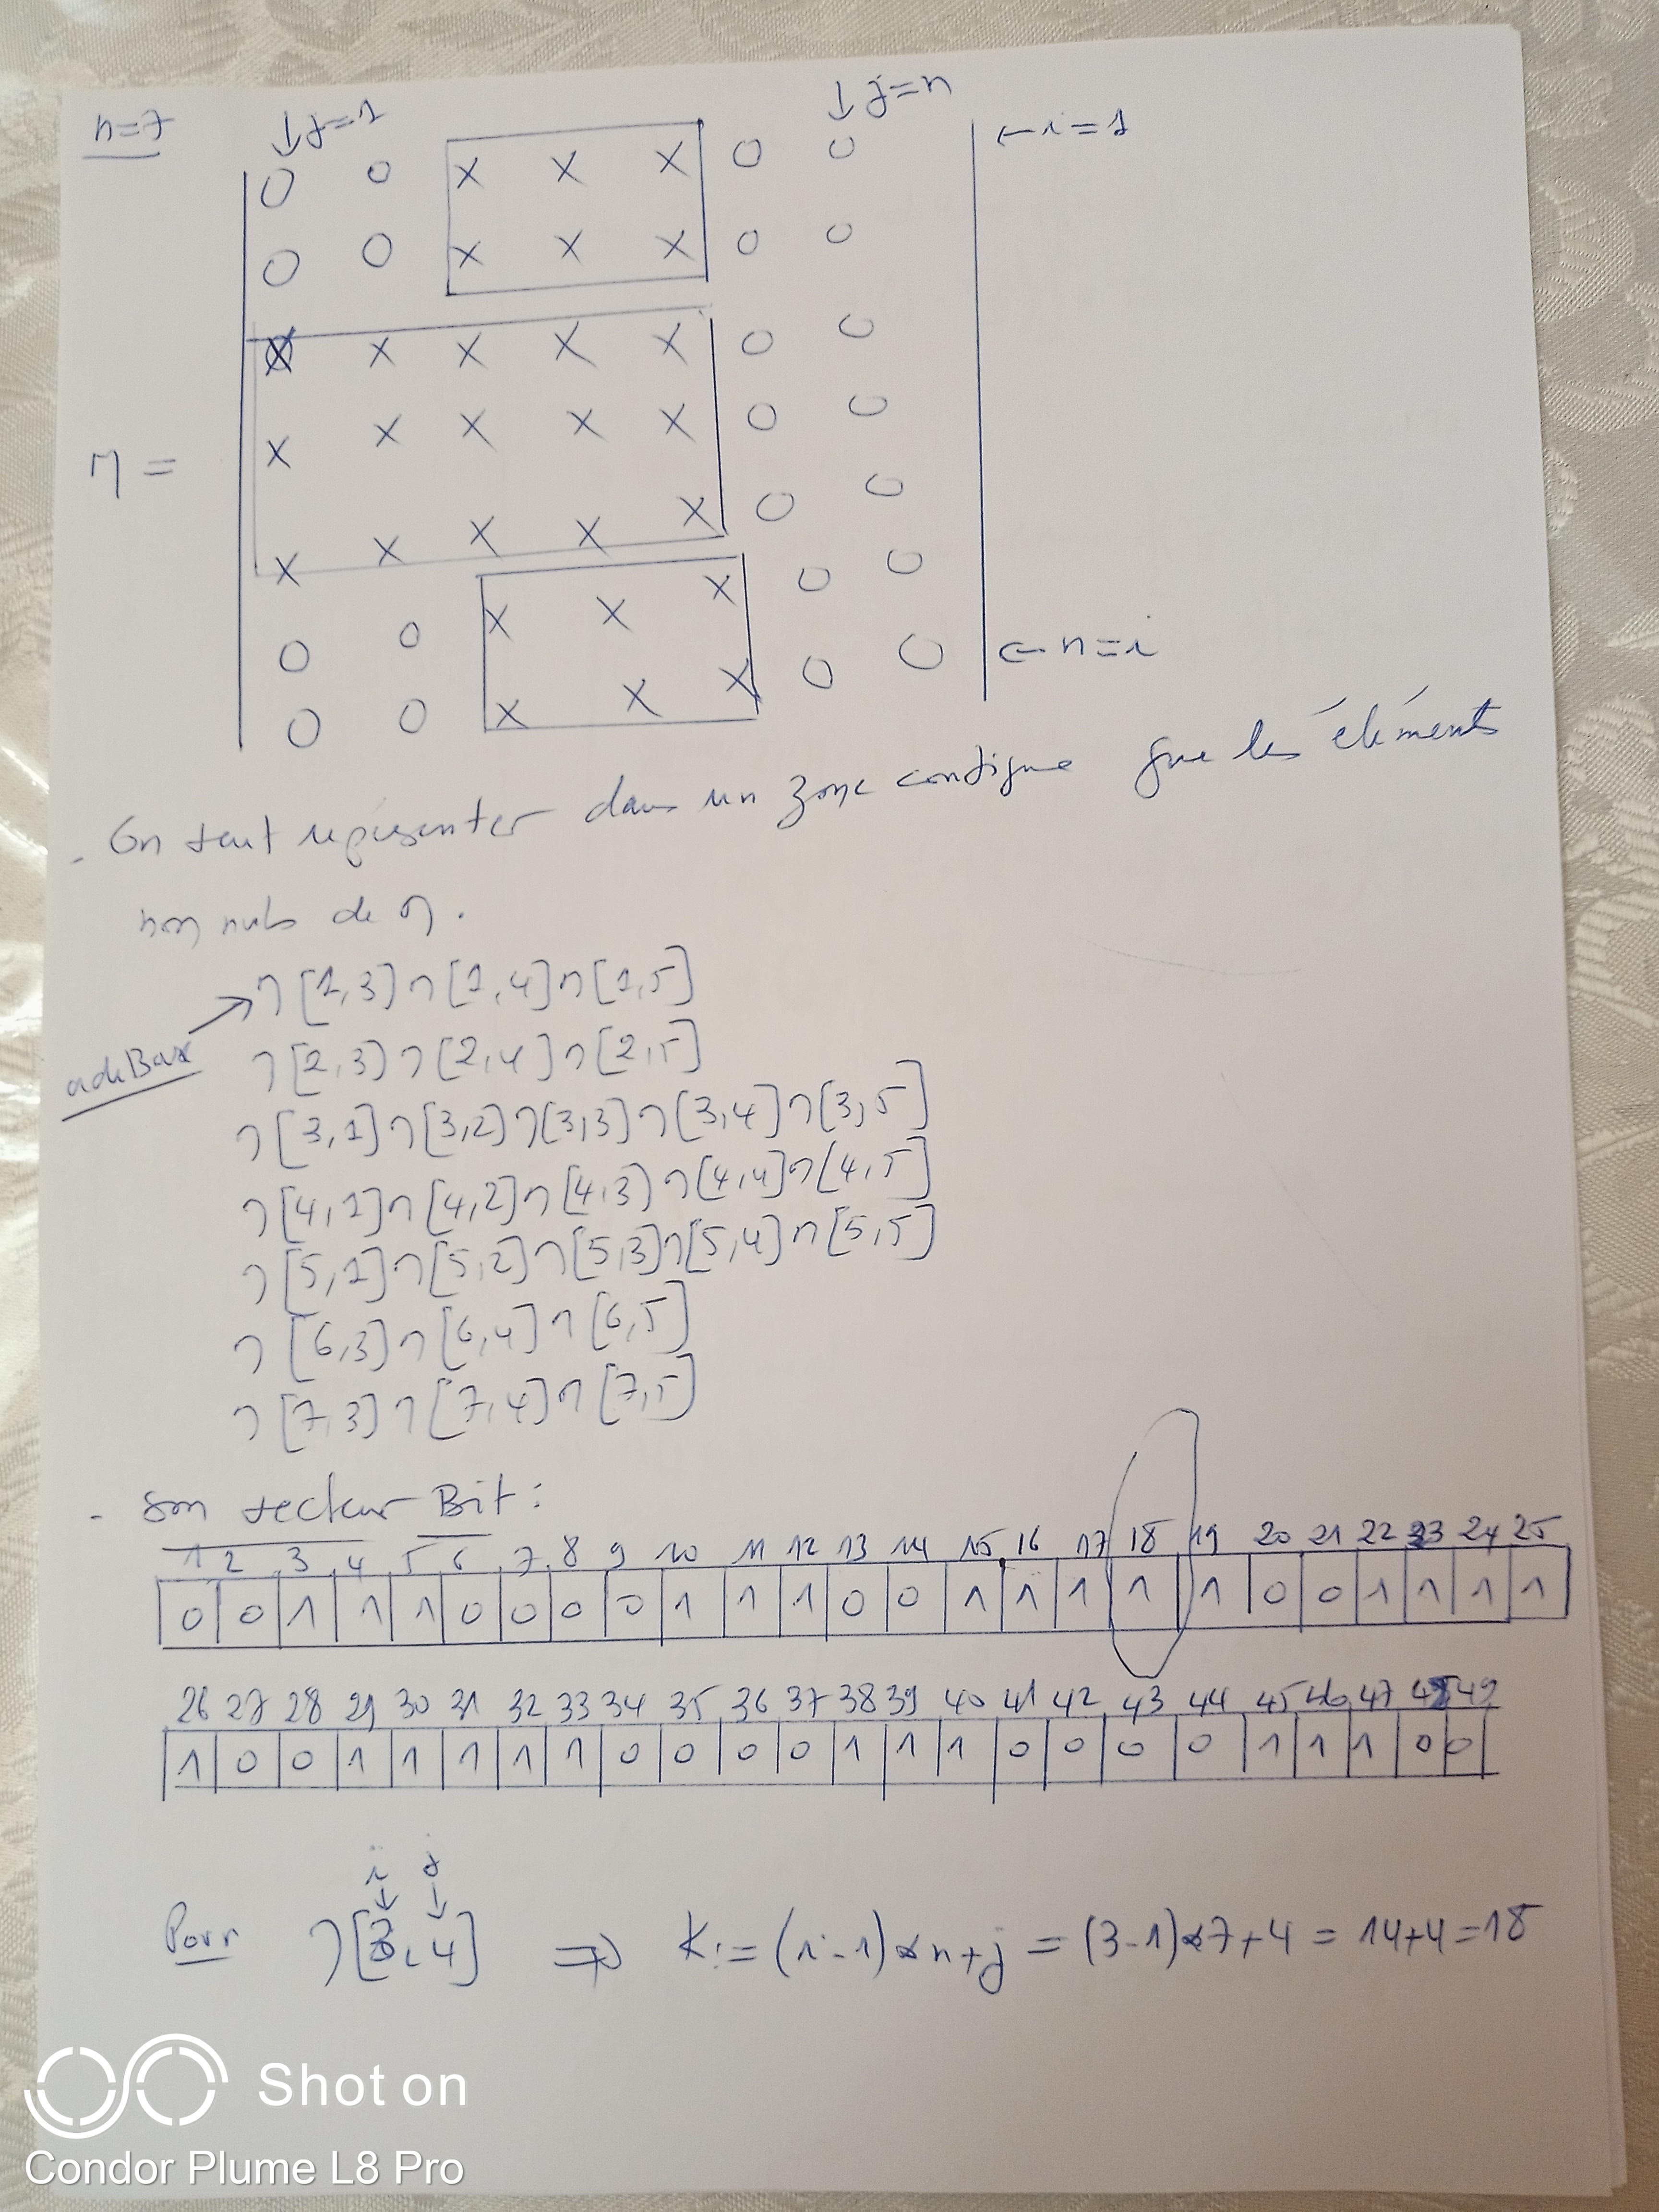 n=7 ↓j=1 ↓j=n
0 0 X X X 0 0 ←i=1
0 0 X X X 0 0
X X X X X 0 0
M = X X X X X 0 0
X X X X X 0 0
0 0 X X X 0 0 ←n=i
0 0 X X X 0 0
- On veut représenter dans un zone contigue que les éléments
non nuls de M.
M[1,3] M[1,4] M[1,5]
adeBase M[2,3] M[2,4] M[2,5]
M[3,1] M[3,2] M[3,3] M[3,4] M[3,5]
M[4,1] M[4,2] M[4,3] M[4,4] M[4,5]
M[5,1] M[5,2] M[5,3] M[5,4] M[5,5]
M[6,3] M[6,4] M[6,5]
M[7,3] M[7,4] M[7,5]
- Son vecteur Bit:
1 2 3 4 5 6 7 8 9 10 11 12 13 14 15 16 17 18 19 20 21 22 23 24 25
0 0 1 1 1 0 0 0 0 1 1 1 0 0 1 1 1 1 1 0 0 1 1 1 1
26 27 28 29 30 31 32 33 34 35 36 37 38 39 40 41 42 43 44 45 46 47 48 49
1 0 0 1 1 1 1 1 0 0 0 0 1 1 1 0 0 0 0 1 1 1 0 0
i j
Pour M[3,4] ⇒ K:=(i-1)*n+j = (3-1)*7+4 = 14+4=18
Shot on
Condor Plume L8 Pro